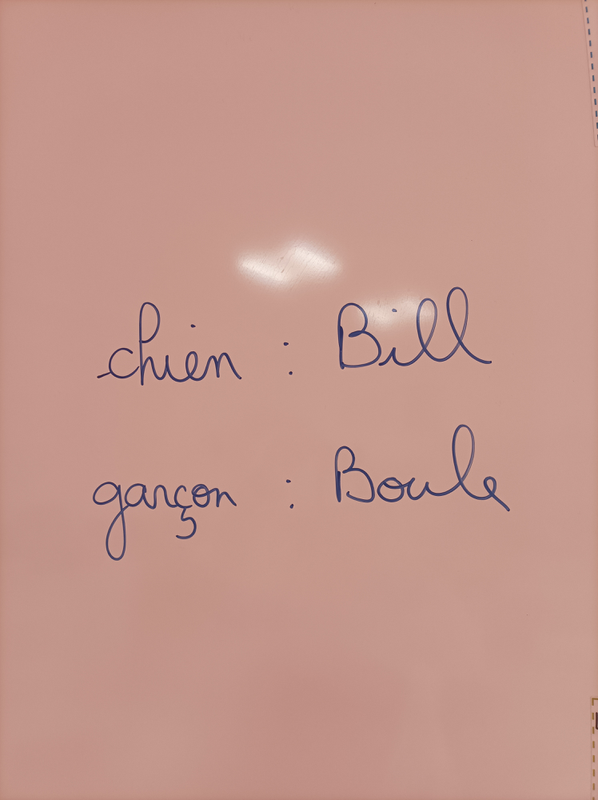 chien : Bill
garçon : Boule